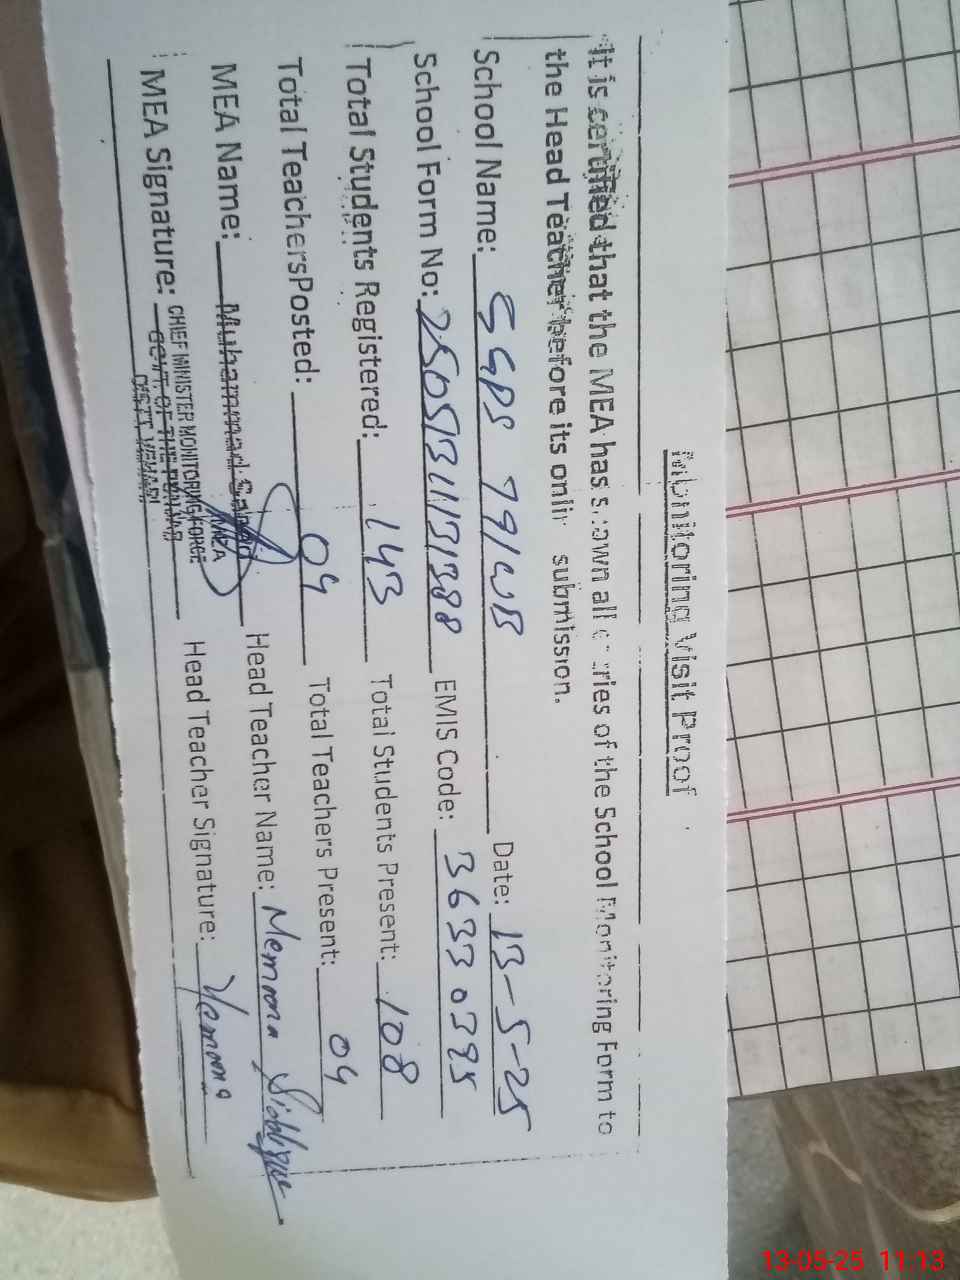 Monitoring Visit Proof
It is certified that the MEA has shown all entries of the School Monitoring Form to
the Head Teacher before its online submission.
School Name: GGPS 79/WB Date: 13-5-25
School Form No: EMIS Code: 36330395
Total Students Registered: 143 Total Students Present: 108
Total Teachers Posted: 04 Total Teachers Present: 04
MEA Name: Muhammad Head Teacher Name: Memoona Siddique
MEA Signature: Head Teacher Signature: Memoona
MEA
CHIEF MINISTER MONITORING FORCE
GOVT. OF THE PUNJAB
DISTT. VEHARI
13-05-25 11:13